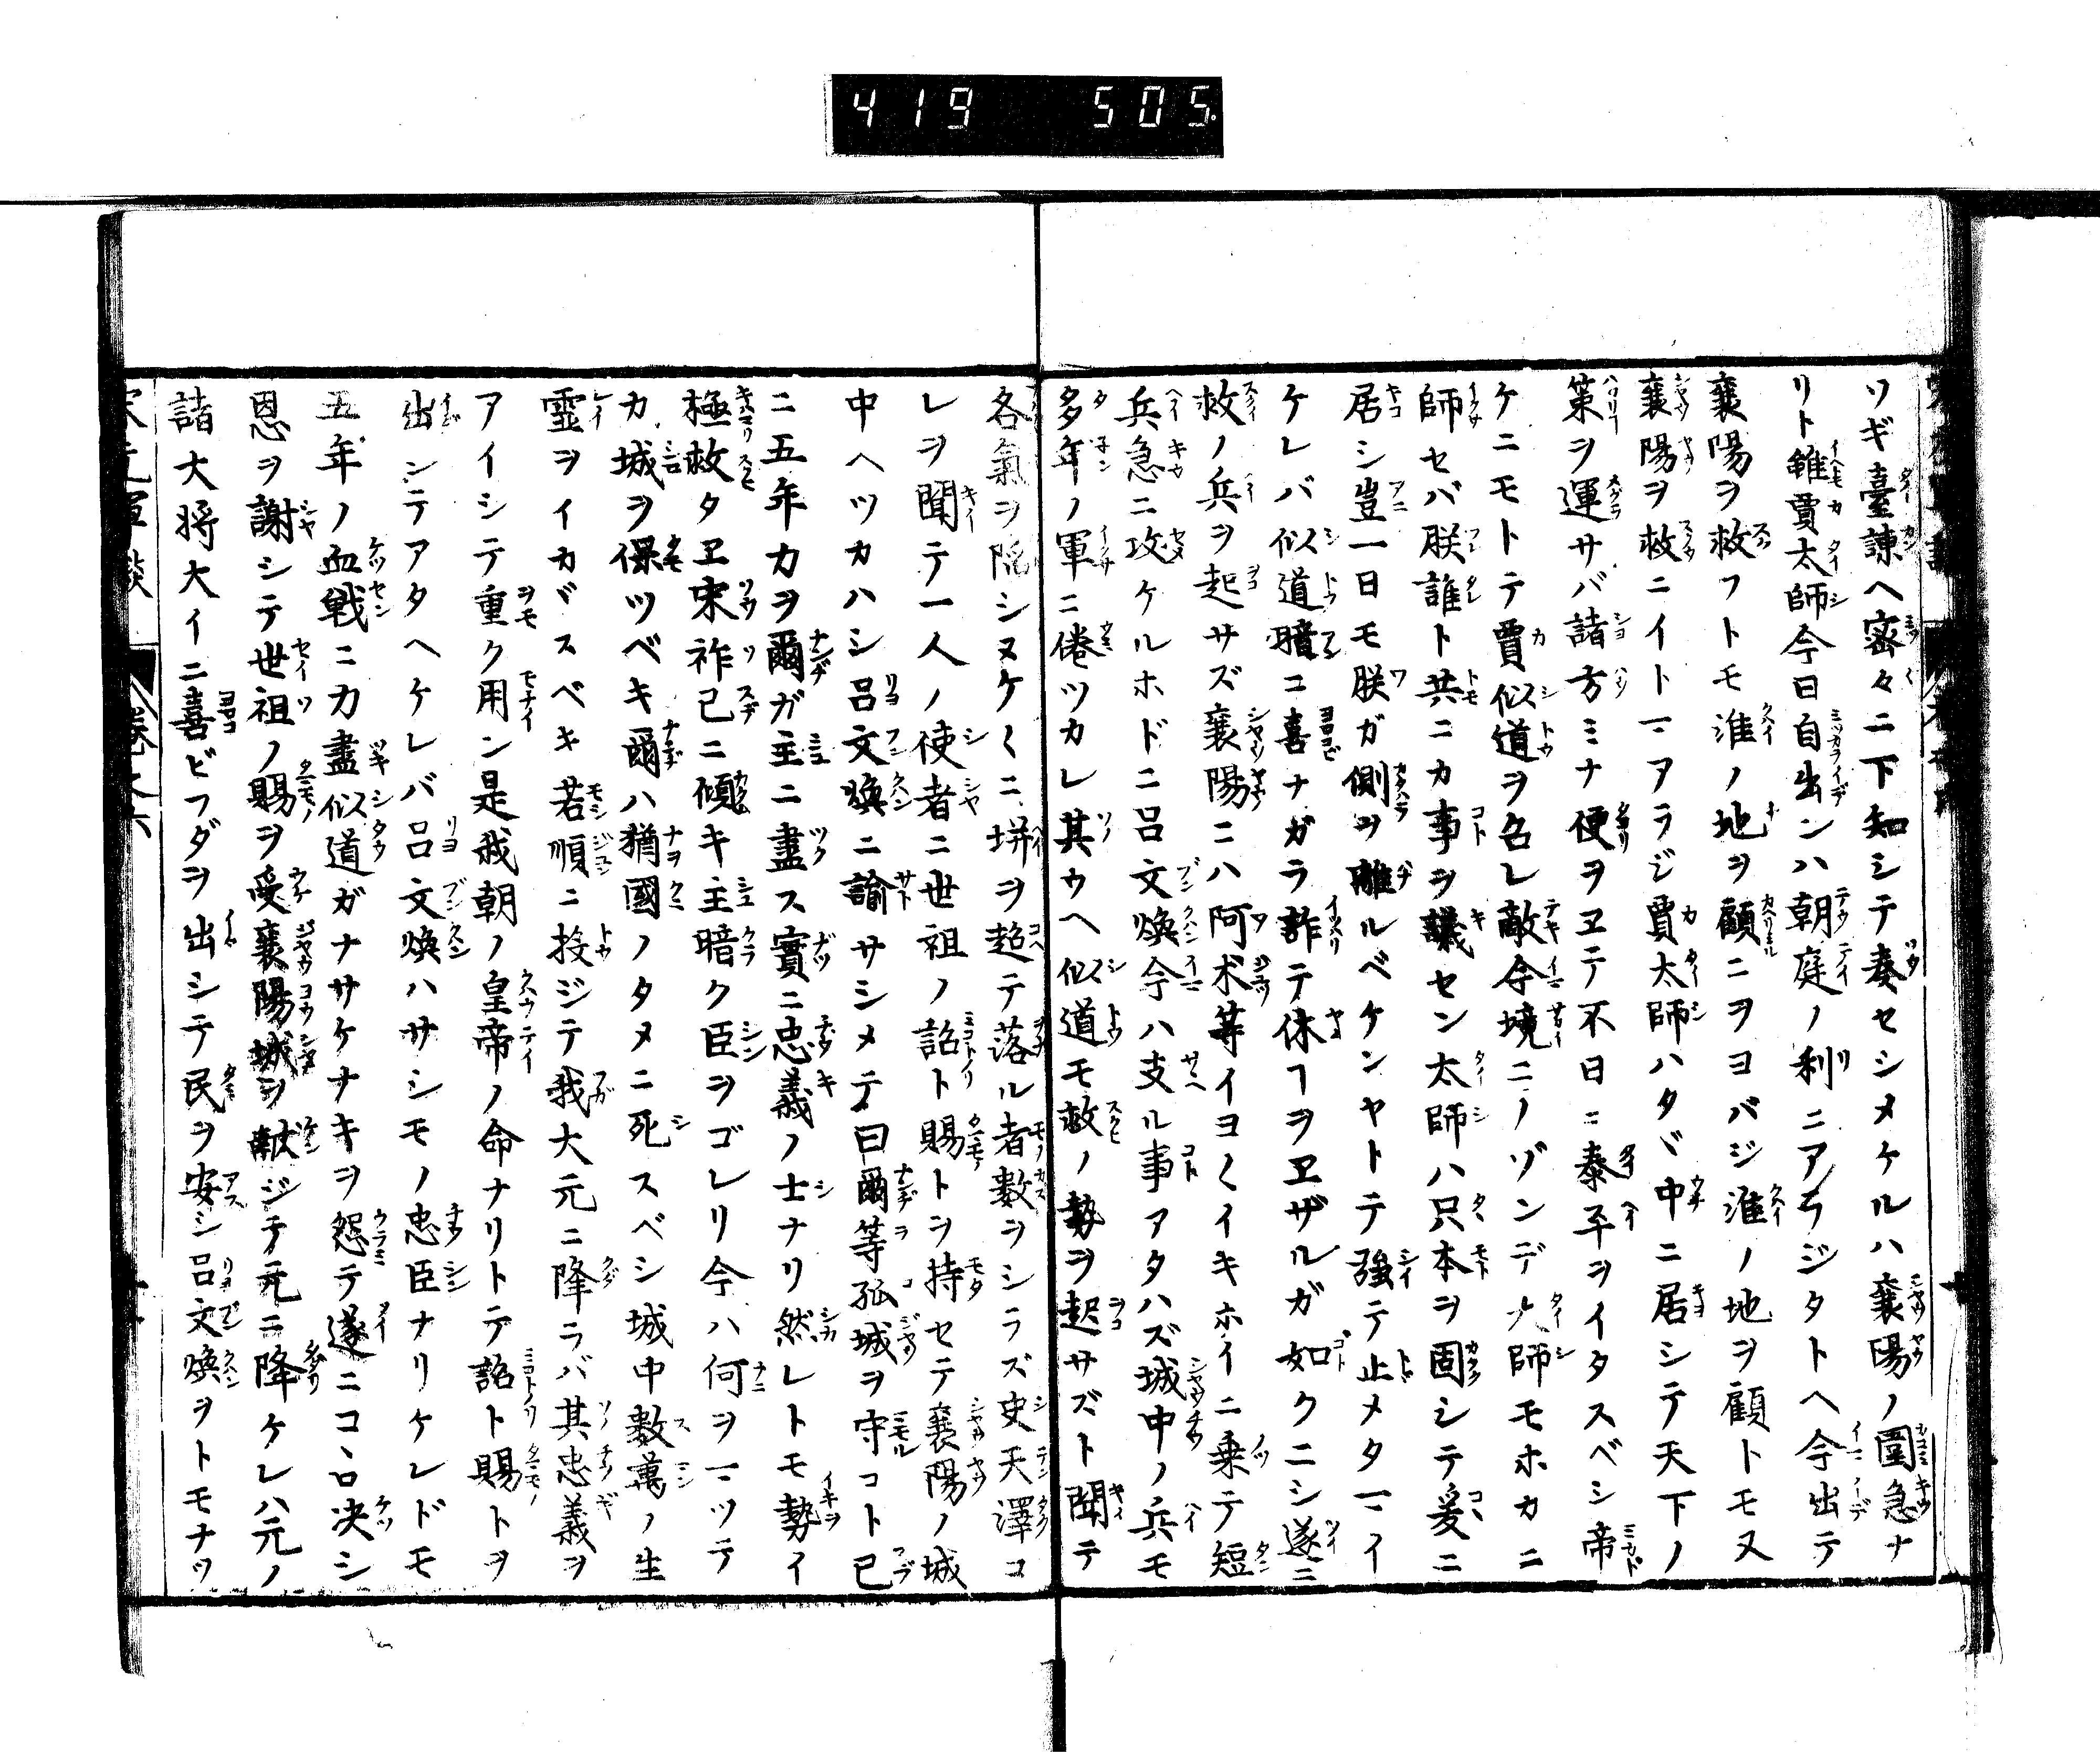 419 505
ツギ臺諫ヘ密々ニ下知シテ奏セシメケルハ襄陽ノ圍急ナ
リト雖賈太師今日自出ンハ朝庭ノ利ニアラジタトヘ今出テ
襄陽ヲ救フトモ淮ノ地ヲ顧ニヲヨバジ淮ノ地ヲ顧トモ又
襄陽ヲ救ニイトマアラジ賈太師ハタヾ中ニ居シテ天下ノ
策ヲ運サバ諸方ミナ便ヲヱテ不日ニ泰平ヲイタスベシ帝
ケニモトテ賈似道ヲ名レ敵今境ニノゾンデ大師モホカニ
師セバ朕誰ト共ニカ事ヲ議セン太師ハ只本ヲ固シテ爰ニ
居シ豈一日モ朕ガ側ヲ離ルベケンヤトテ強テ止メタマイ
ケレバ似道暗ニ喜ナガラ詐テ休ヿヲヱザルガ如クニシ遂ニ
救ノ兵ヲ起サズ襄陽ニハ阿术等イヨ〱イキホイニ乗テ短
兵急ニ攻ケルホドニ呂文煥今ハ支ル事アタハズ城中ノ兵モ
多年ノ軍ニ倦ツカレ其ウヘ似道モ救ノ勢ヲ起サズト聞テ
各氣ヲ隕シヌケ〱ニ塀ヲ超テ落ル者數ヲシラズ史天澤コ
レヲ聞テ一人ノ使者ニ世祖ノ詔ト賜トヲ持セテ襄陽ノ城
中ヘツカハシ呂文煥ニ諭サシメテ曰爾等孤城ヲ守コト已
ニ五年カヲ爾ガ主ニ盡ス實ニ忠義ノ士ナリ然レトモ勢イ
極救タヱ宋祚已ニ傾キ主暗ク臣ヲゴレリ今ハ何ヲマツテ
カ城ヲ保ツベキ爾ハ猶國ノタメニ死スベシ城中數萬ノ生
靈ヲイカヾスベキ若順ニ投ジテ我大元ニ降ラバ其忠義ヲ
アイシテ重ク用ン是我朝ノ皇帝ノ命ナリトテ詔ト賜トヲ
出シテアタヘケレバ呂文煥ハサシモノ忠臣ナリケレドモ
五年ノ血戦ニ力盡似道ガナサケナキヲ怨テ遂ニコヽロ決シ
恩ヲ謝シテ世祖ノ賜ヲ受襄陽城ヲ献ジテ元ニ降ケレハ元ノ
諸大将大イニ喜ビフダヲ出シテ民ヲ安シ呂文煥ヲトモナツ
宋元軍談 卷之六